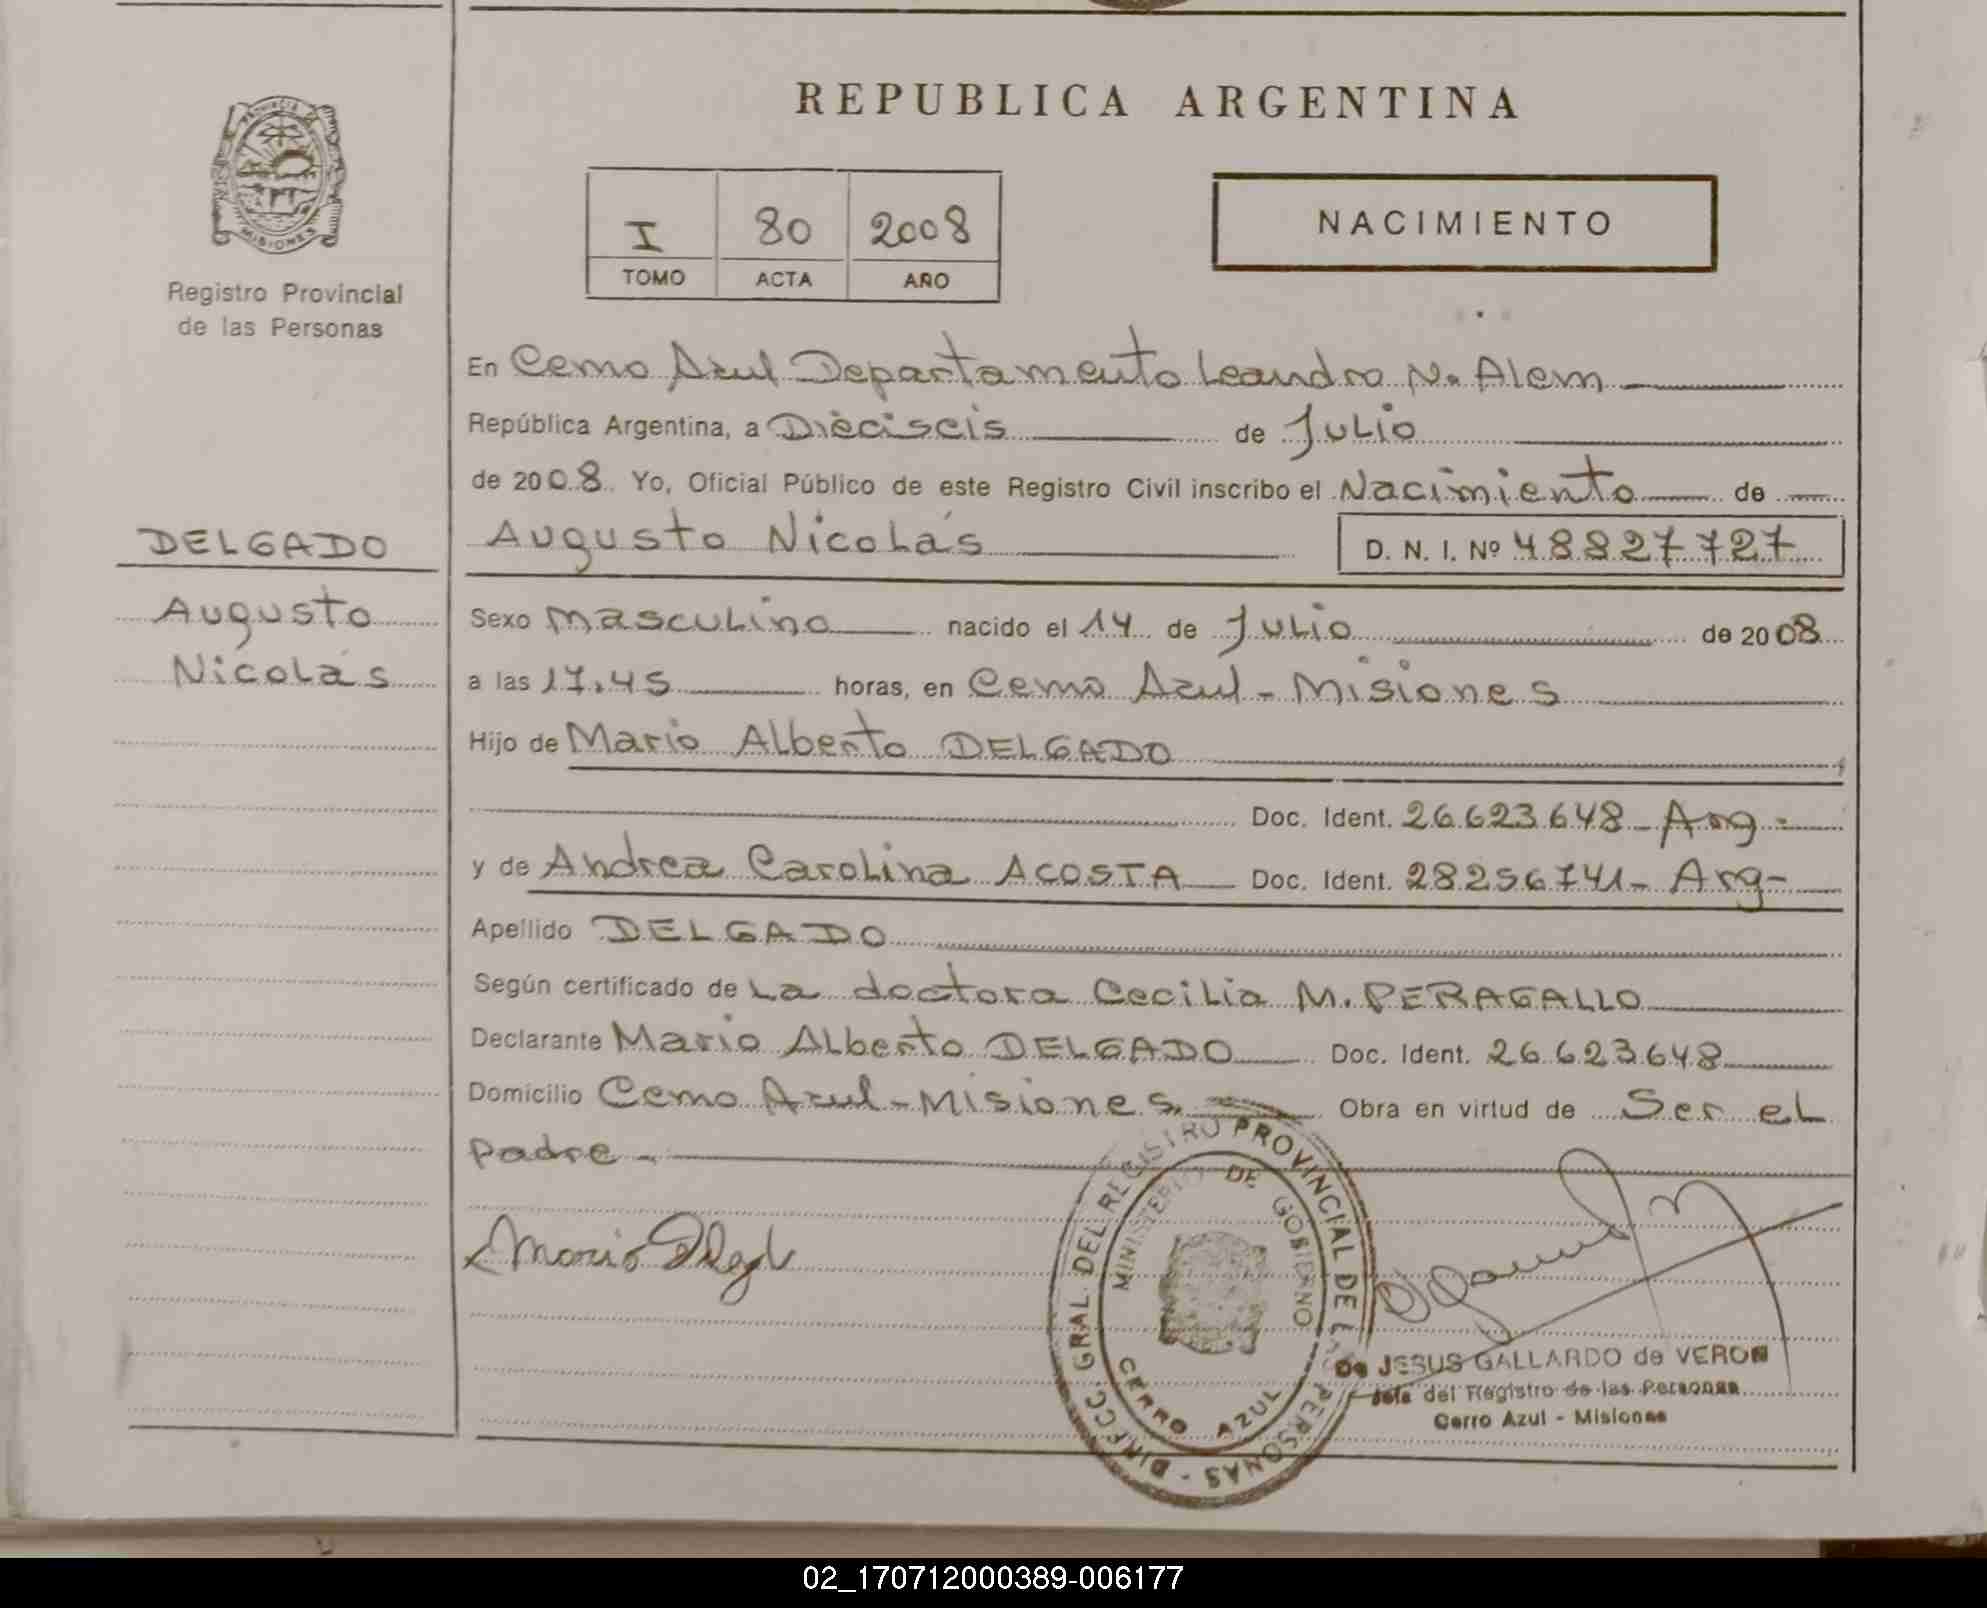 REPUBLICA ARGENTINA
PROVINCIA DE
MISIONES
Registro Provincial
de las Personas
I 80 2008
TOMO ACTA AÑO
NACIMIENTO
En Cerro Azul Departamento Leandro N. Alem
República Argentina, a Dieciseis de Julio
de 2008. Yo, Oficial Público de este Registro Civil inscribo el Nacimiento de
DELGADO
Augusto
Nicolás
Augusto Nicolás D. N. I. Nº 48827727
Sexo masculino nacido el 14 de Julio de 2008
a las 17.45 horas, en Cerro Azul - Misiones
Hijo de Mario Alberto DELGADO
Doc. Ident. 26.623.648 - Arg -
y de Andrea Carolina ACOSTA Doc. Ident. 28256741 - Arg -
Apellido DELGADO
Según certificado de La doctora Cecilia M. PERAGALLO
Declarante Mario Alberto DELGADO Doc. Ident. 26.623.648
Domicilio Cerro Azul - Misiones Obra en virtud de Ser el
padre -
DIRECC. GRAL. DEL REGISTRO PROVINCIAL DE LAS PERSONAS -
MINISTERIO DE GOBIERNO
CERRO AZUL
Mario
De JESUS GALLARDO de VERON
Jefe del Registro de las Personas
Cerro Azul - Misiones
02_170712000389-006177